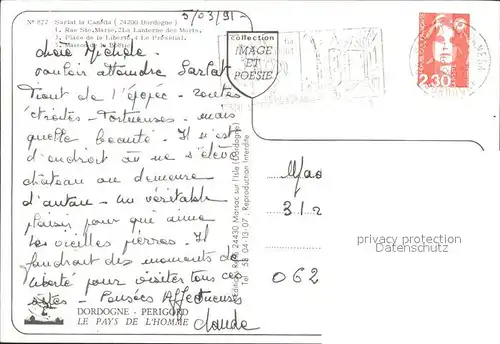 N° 877 - Sarlat la Canéda (24200-Dordogne)
1. Rue Ste Marie, 2. La Lanterne des Morts,
3. Place de la Liberté, 4. Le Présidial,
5. Maison de la Boétie
5/03/91-
collection
IMAGE
ET
POÉSIE
2,30
chère Michèle.
vouloir atteindre Sarlat
Tient de l'épopée - routes
étroites - Tortueuses - mais
quelle beauté - Il n'est
d'endroit où ne s'élève
château ou demeure
d'antan - un véritable
plaisir pour qui aime
les vieilles pierres - Il
faudrait des moments de
liberté pour visiter tous ces
sites - Pensées Affectueuses
Claude
DORDOGNE - PÉRIGORD
LE PAYS DE L'HOMME
24430 Marsac sur l'Isle (Dordogne)
Tel 53 04 13 07 : Reproduction Interdite
312
062
privacy protection
Datenschutz